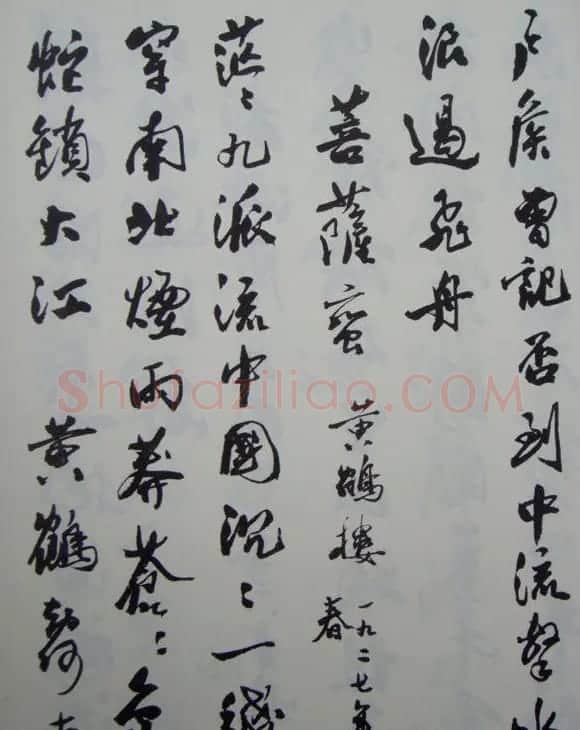 户侯曾記否到中流擊水
浪遏飛舟
菩薩蠻 黃鶴樓 一九二七年
春
茫〻九派流中國沉〻一綫
穿南北煙雨莽蒼〻龜
蛇鎖大江 黃鶴知何去
Shufaziliao.COM